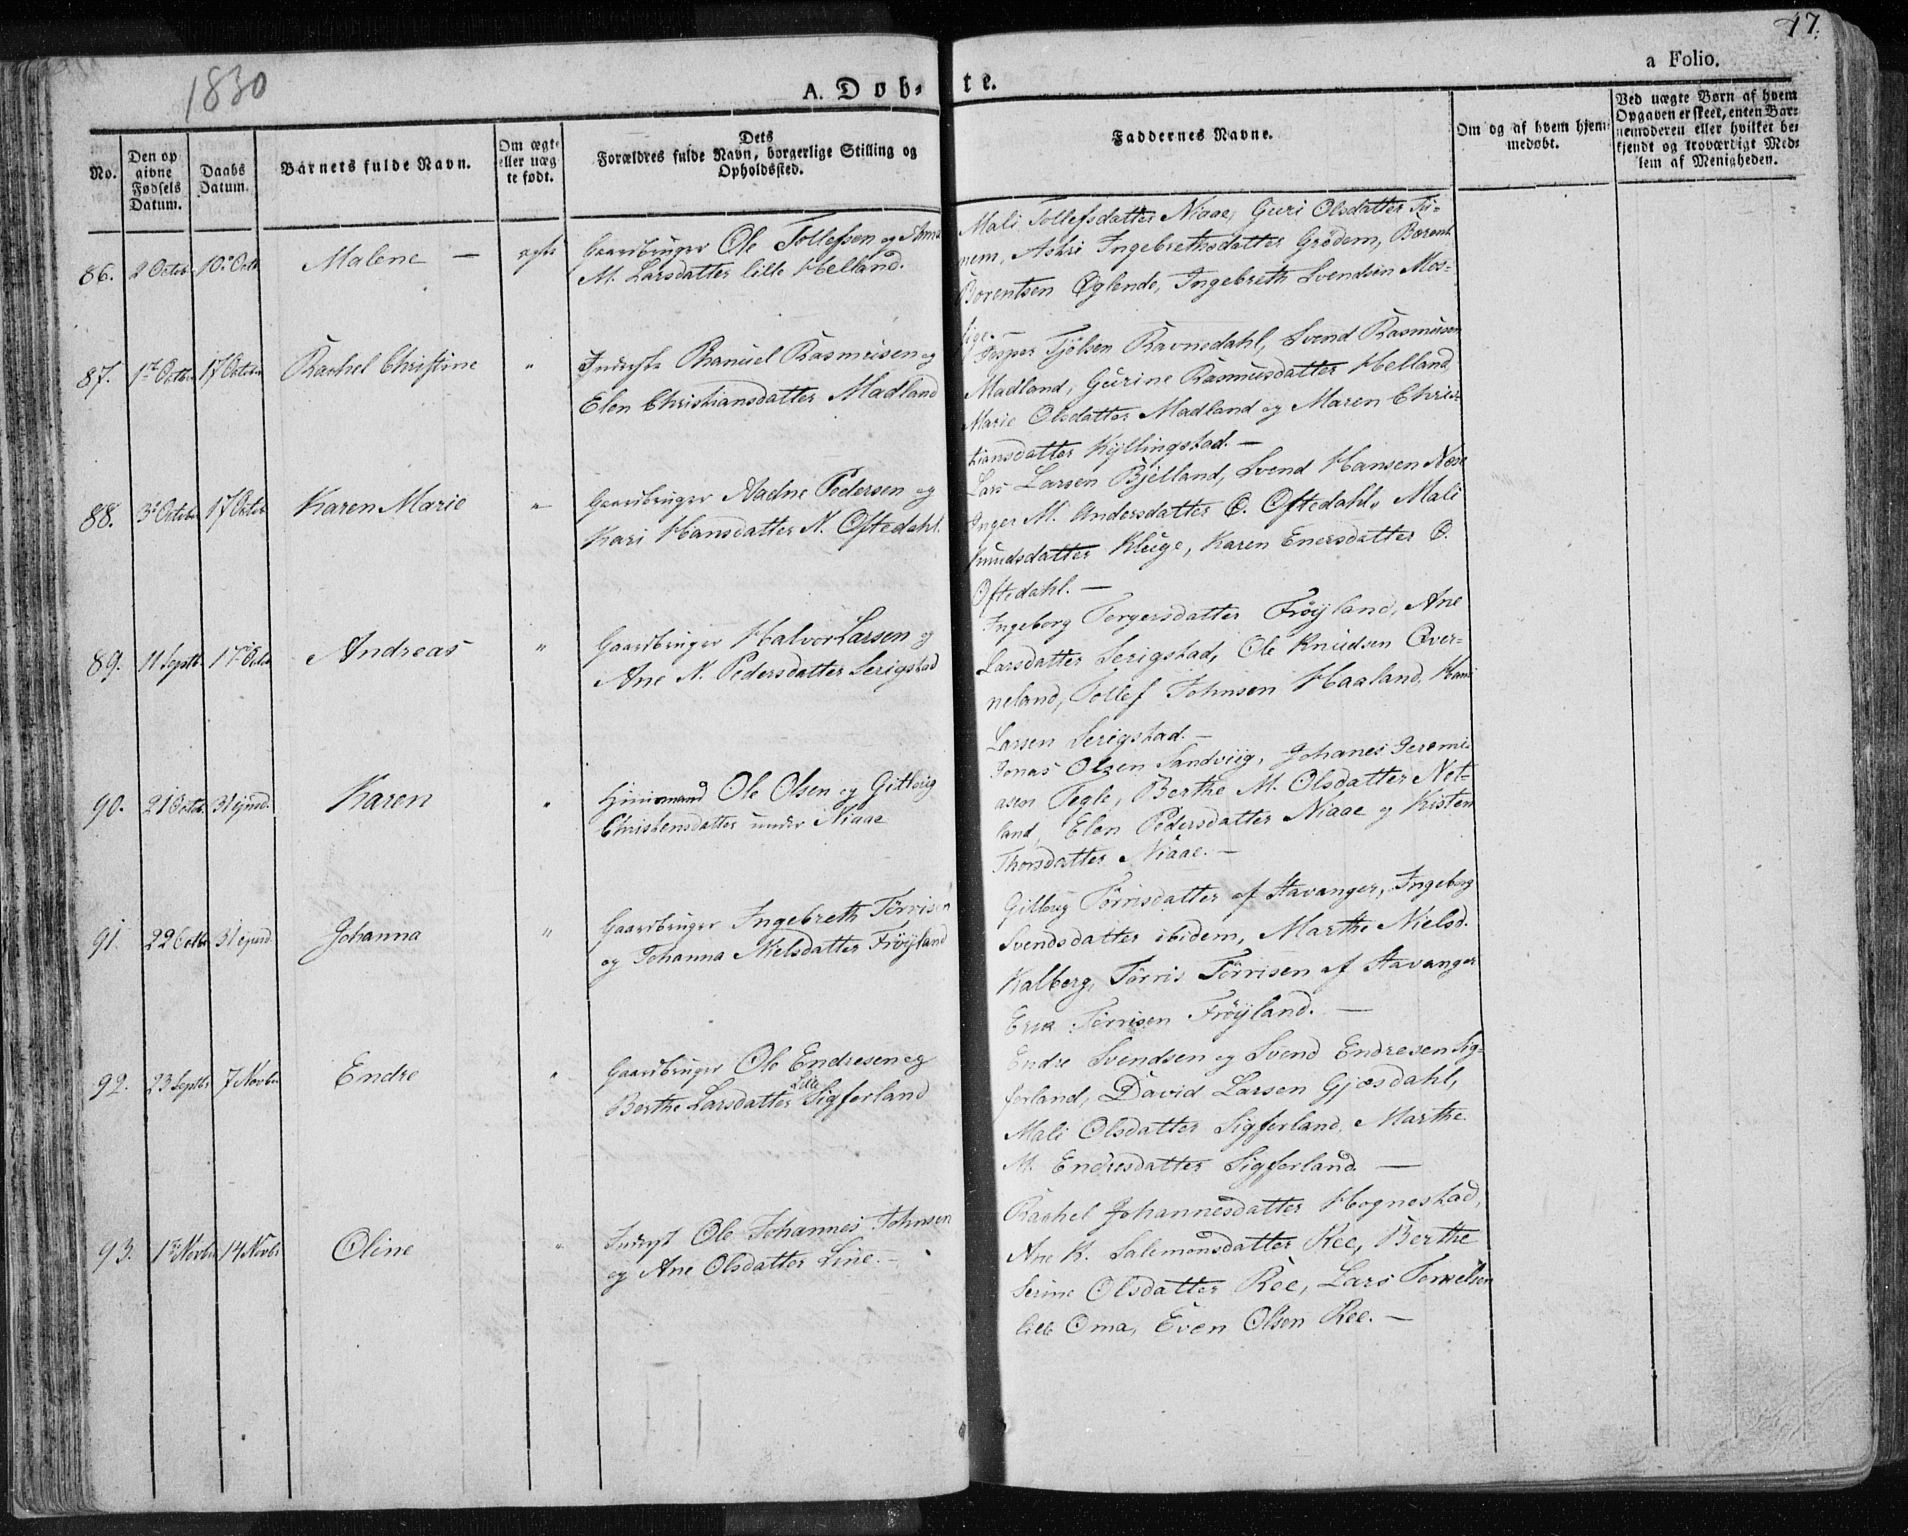 1830
A. Døb-
te.
17.
a Folio.
No.
Den op
givne
Fødsels
Datum.
Daabs
Datum.
Barnets fulde Navn.
Om ægte
eller uæg
te født.
Dets
Forældres fulde Navn, borgerlige Stilling og
Opholdssted.
Faddernes Navne.
Om og af hvem hjem-
medøbt.
Ved uægte Børn af hvem
Opgaven er skeet, enten Bar-
nemoderen eller hvilket be-
kjendt og troværdigt Med-
lem af Menigheden.
86. 2 Octob. 10de Octb. Malene — ægte
Gaardbruger Ole Tollefsen og Anna
M. Larsdatter lille Helland.
Mali Tollefsdatter Niaae, Guri Olsdatter Tu-
nem, Askri Ingebrethsdatter Grødem, Børent
Børentsen Øglende, Ingebreth Svendsen Mos-
sige.
87. 1ste Octbr 17 Octobr Rachel Christine "
Inderste Rasmus­en og
Elen Christiansdatter Madland
Jesper Tjölsen Ravnsdahl, Svend Rasmusen
Madland, Gurine Rasmusdatter Helland,
Marie Olsdatter Madland og Maren Chris-
tiansdatter Kyllingstad. —
88. 3die Octobr 17 Octobr Karen Marie "
Gaardbruger Aadne Pedersen og
Kari Hansdatter N. Oftedahl.
Lars Larsen Bjelland, Svend Hansen Nese
Inger M. Andersdatter Ø. Oftedahl, Mali
Knudsdatter Kluge, Karen Enersdatter Ø.
Oftedahl. —
89. 11 Septbr. 17de Octbr Andreas "
Gaardbruger Halvor Larsen og
Ane N. Pedersdatter Serigstad
Ingeborg Torgersdatter Frøyland, Ane
Larsdatter Serigstad, Ole Knudsen Øver-
neland, Tollef Johnsen Haaland, Hans
Larsen Serigstad. —
90. 21 Octob. 31 ejusd. Karen "
Huusmand Ole Olsen og Gitlvig
Christensdatter under Niaae
Jonas Olsen Sandviig, Johanes Jeremi-
asen Tegle, Berthe M. Olsdatter Net-
land, Elen Pedersdatter Niaae og Kisten
Thorsdatter Niaae. —
91. 22 Octbr 31 ejusd. Johanna "
Gaardbruger Ingebreth Törrisen
og Johanna Nielsdatter Frøyland
Gitlvig Törrisdatter af Stavanger, Ingeborg
Svendsdatter ibidem, Marthe Nielsd.
Kalberg, Törris Törrisen af Stavanger
Eric Törrisen Frøyland. —
92. 23 Septbr 7 Novbr Endre "
Gaardbruger Ole Endresen og
Berthe Larsdatter Lille Sigferland
Endre Svendsen og Svend Endresen Sig-
ferland, David Larsen Gjesdahl,
Mali Olsdatter Sigferland, Marthe
M. Endresdatter Sigferland. —
93. 1ste Novbr 14 Novbr Oline "
Inderst Ole Johannes Johnsen
og Ane Olsdatter Line. —
Rachel Johannesdatter Hognestad,
Ane K. Salemonsdatter Ree, Berthe
Serine Olsdatter Ree, Lars Tonnelsen
lille Oma, Even Olsen Ree. —